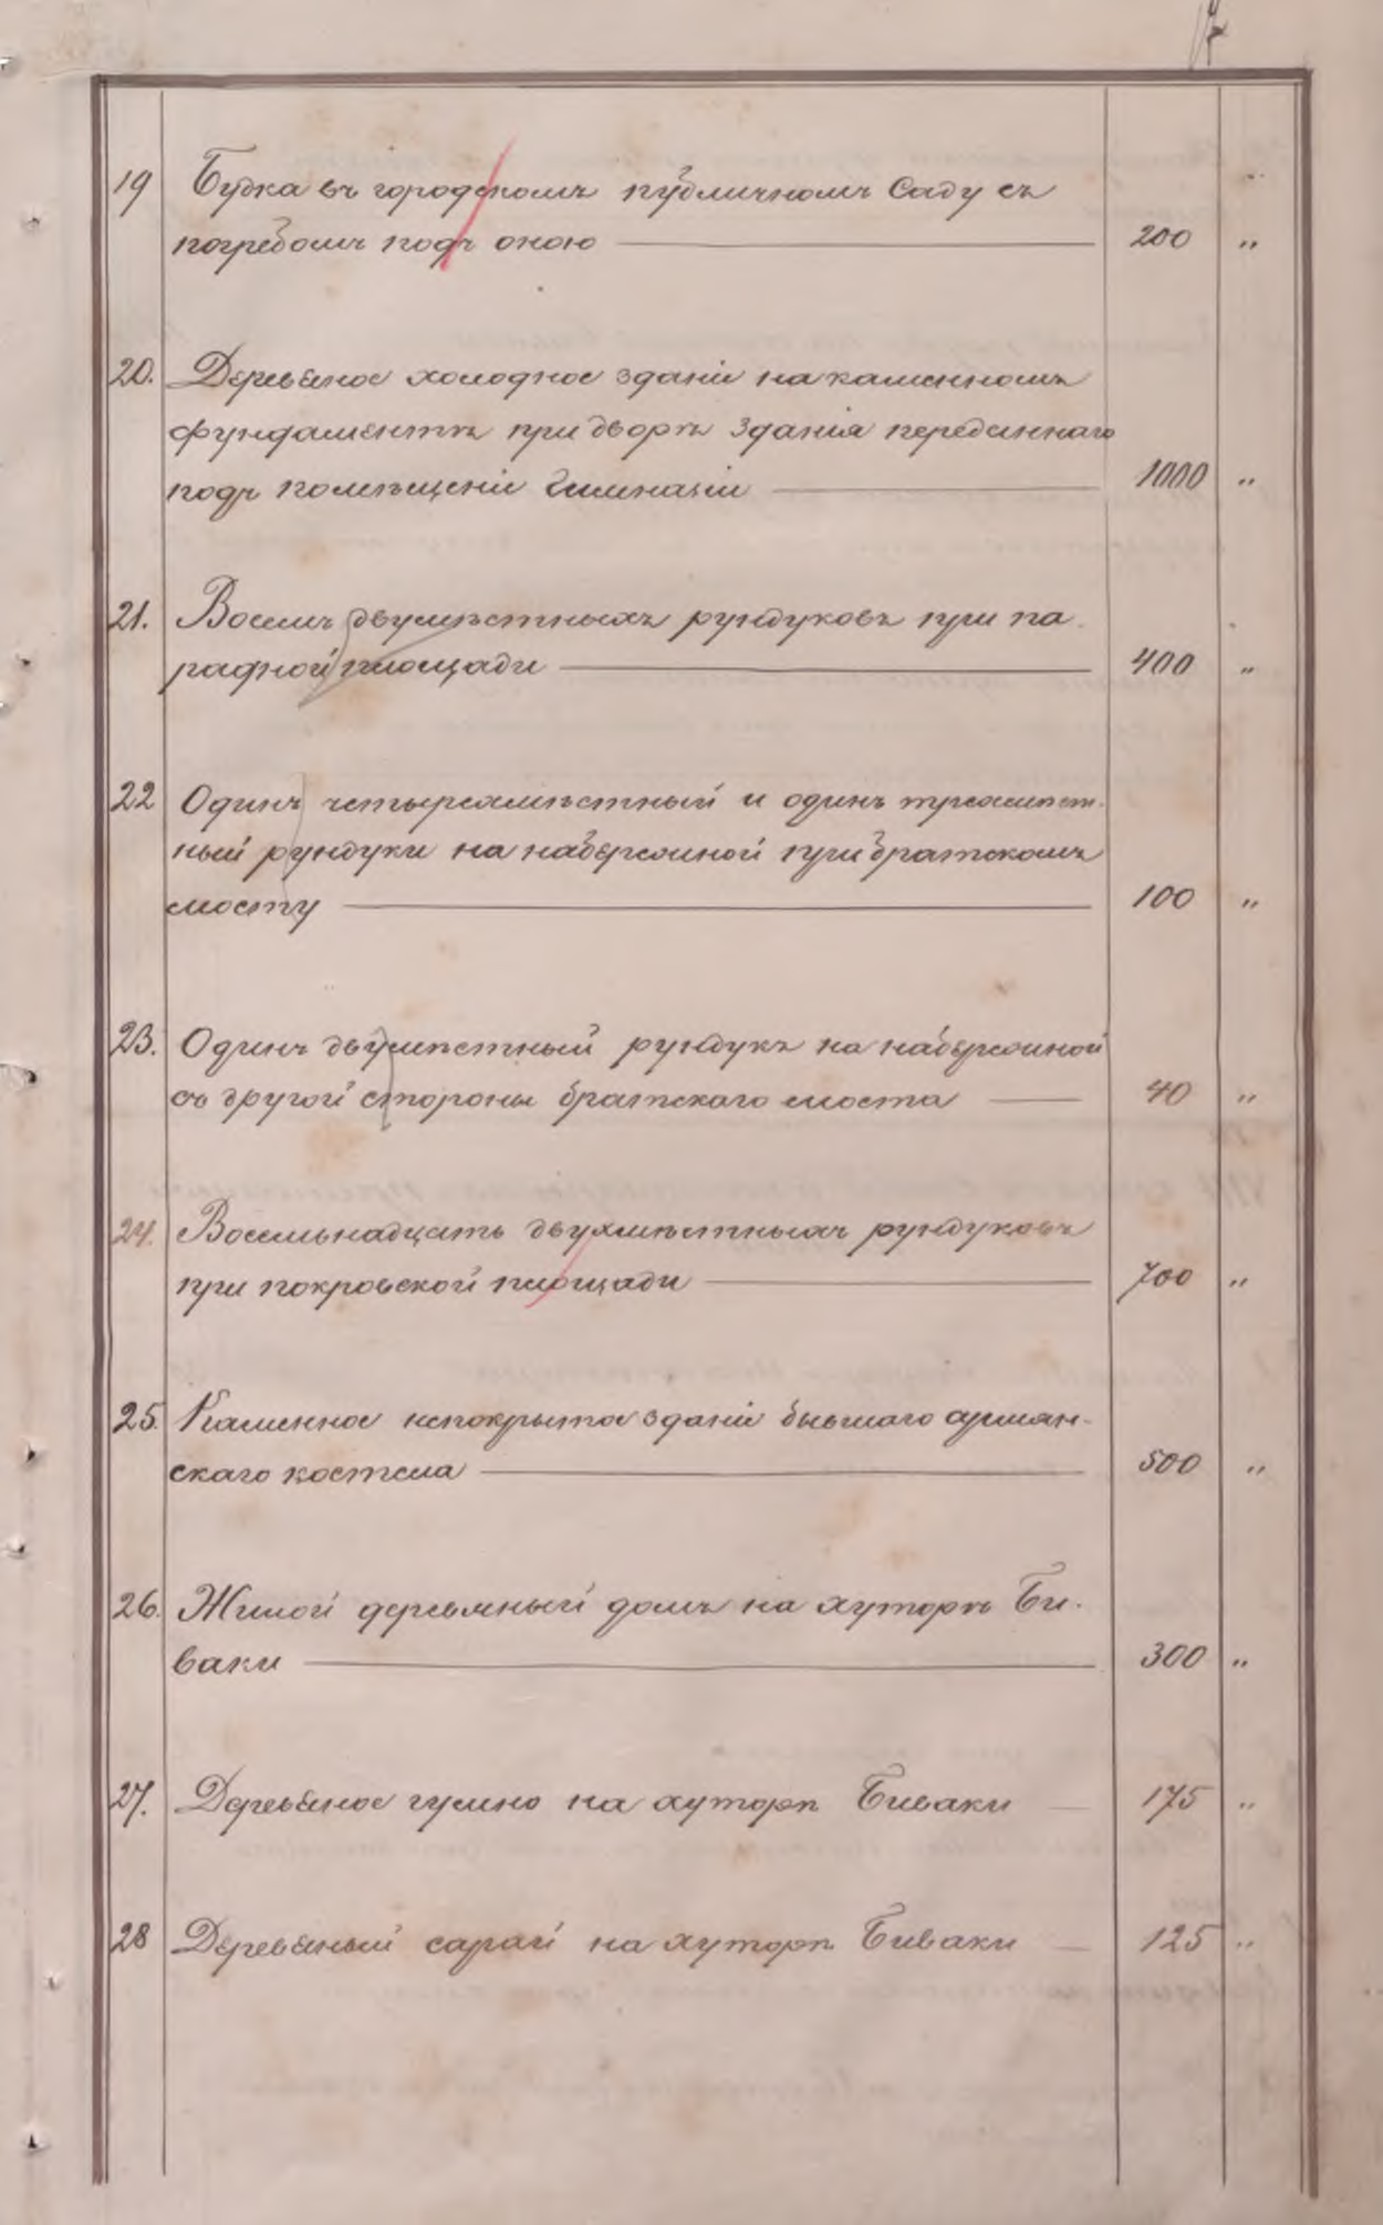 19 Будка въ городскомъ публичномъ Саду съ
погребомъ подъ оною — 200 „
20. Деревяное холодное зданіе на каменномъ
фундаментѣ при дворѣ зданія переданнаго
подъ помѣщеніе Гимназіи — 1000 „
21. Восемь двумѣстныхъ рундуковъ при па-
радной площади — 400 „
22 Одинъ четырехмѣстный и одинъ трехмѣст-
ный рундуки на набережной при братскомъ
мосту — 100 „
23. Одинъ двумѣстный рундукъ на набережной
съ другой стороны братскаго моста — 40 „
24. Восемьнадцать двухмѣстныхъ рундуковъ
при покровской площади — 700 „
25. Каменное непокрытое зданіе бывшаго армян-
скаго костела — 500 „
26. Жилой деревяный домъ на хуторѣ Би-
ваки — 300 „
27. Деревяное гумно на хуторѣ Биваки — 175 „
28 Деревяный сарай на хуторѣ Биваки — 125 „